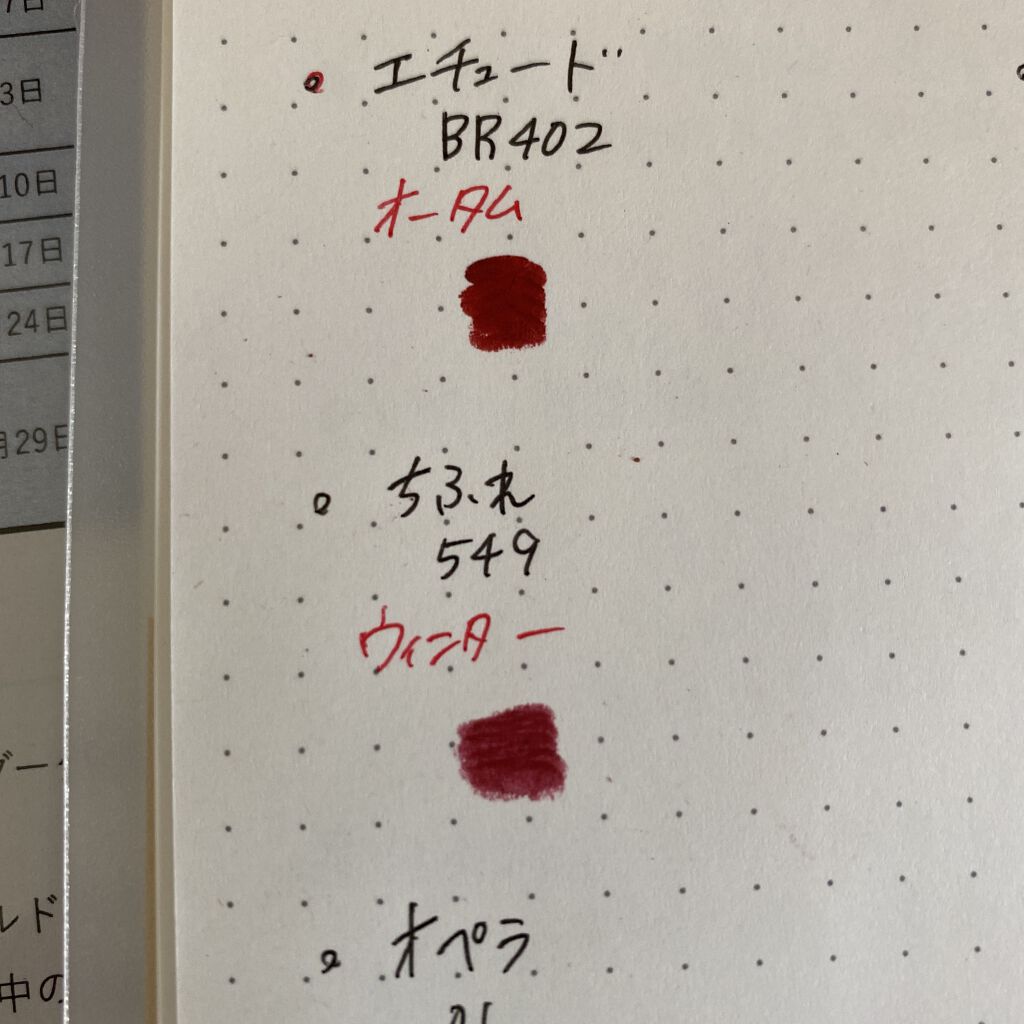 3日
10日
17日
24日
月29日
ルド
中の
エチュード
BR402
オータム
ちふれ
549
ウィンター
オペラ